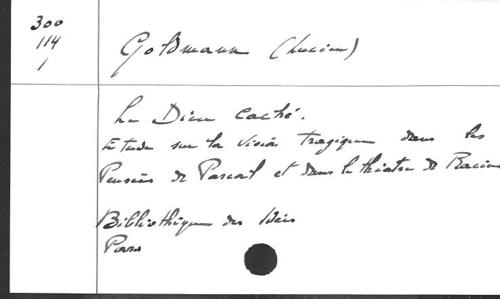 300
114
1
Goldmann (Lucien)
Le Dieu Caché.
Etude sur la vision tragique dans les
Pensées de Pascal et dans le théatre de Racine
Bibliothèque des Idées
Paris